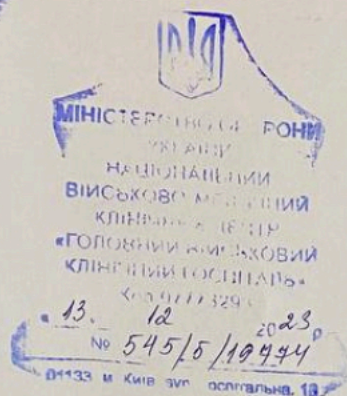 МІНІСТЕРСТВО ОБОРОНИ
УКРАЇНИ
НАЦІОНАЛЬНИЙ
ВІЙСЬКОВО-МЕДИЧНИЙ
КЛІНІЧНИЙ ЦЕНТР
«ГОЛОВНИЙ ВІЙСЬКОВИЙ
КЛІНІЧНИЙ ГОСПІТАЛЬ»
Код
« 13 » 12 2023 р
№ 545/5/19774
01133 м Київ вул Госпітальна, 18